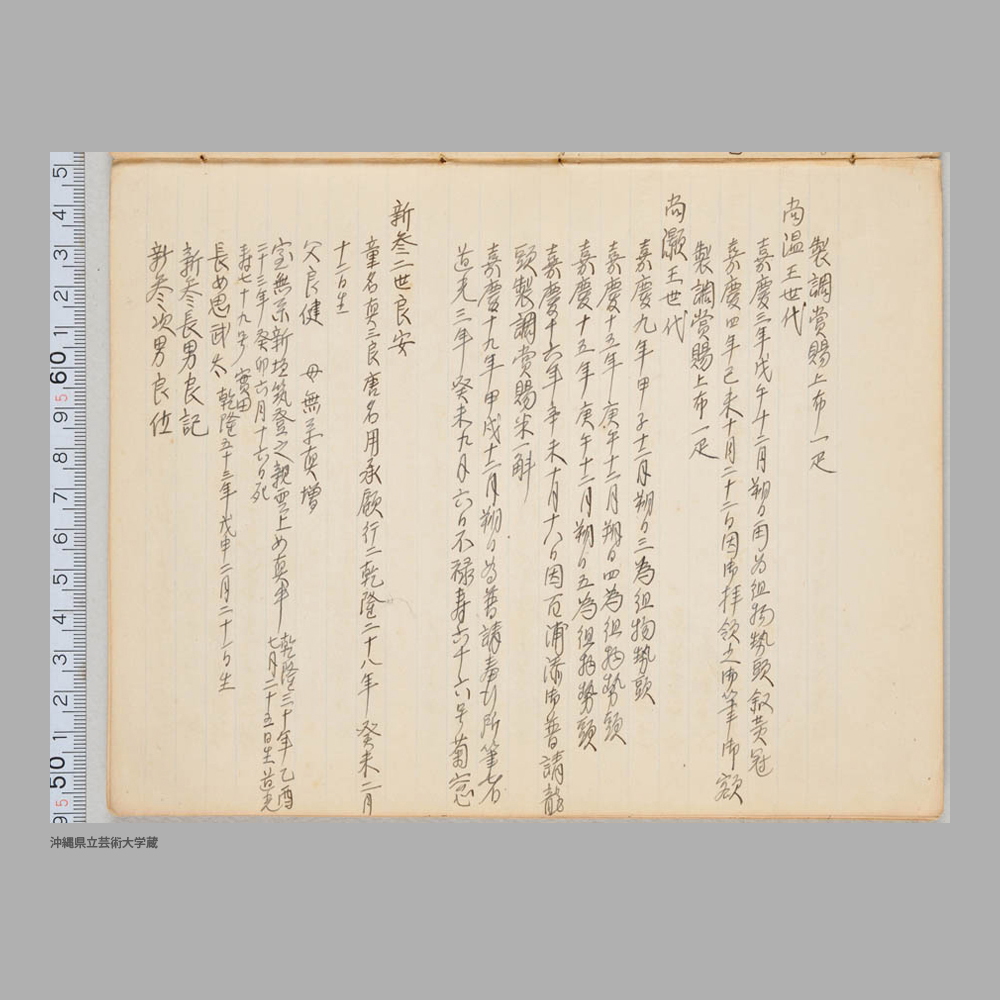 製調賞賜上布一疋
尚温王世代
嘉慶三年戊午十二月朔日再為組物勢頭叙黄冠
嘉慶四年己未十月二十二日因御拝領之御筆御額
製調賞賜上布一疋
尚灝王世代
嘉慶九年甲子十二月朔日三為組物勢頭
嘉慶十五年庚午十二月朔日四為組物勢頭
嘉慶十五年庚午十二月朔日五為組物勢頭
嘉慶十六年辛未十月十八日因百浦添御普請龍
頭製調賞賜米一斛
嘉慶十九年甲戌十二月朔日為普請奉行所筆者
道光三年癸未九月六日不禄寿六十六号菊窓
新参二世良安
童名真三良唐名用承願行二乾隆二十八年癸未二月
十二日生
父良健 母無系真増
室無系新垣筑登之親雲上女真牛 乾隆三十年乙酉
七月二十五日生道光
二十三年癸卯六月十六日死
寿七十九号實田
長女思武太 乾隆五十三年戊申二月二十一日生
新参長男良記
新参次男良位
沖縄県立芸術大学蔵
5 4 3 2 1 60 9 8 7 6 5 4 3 2 1 50 9
5
5